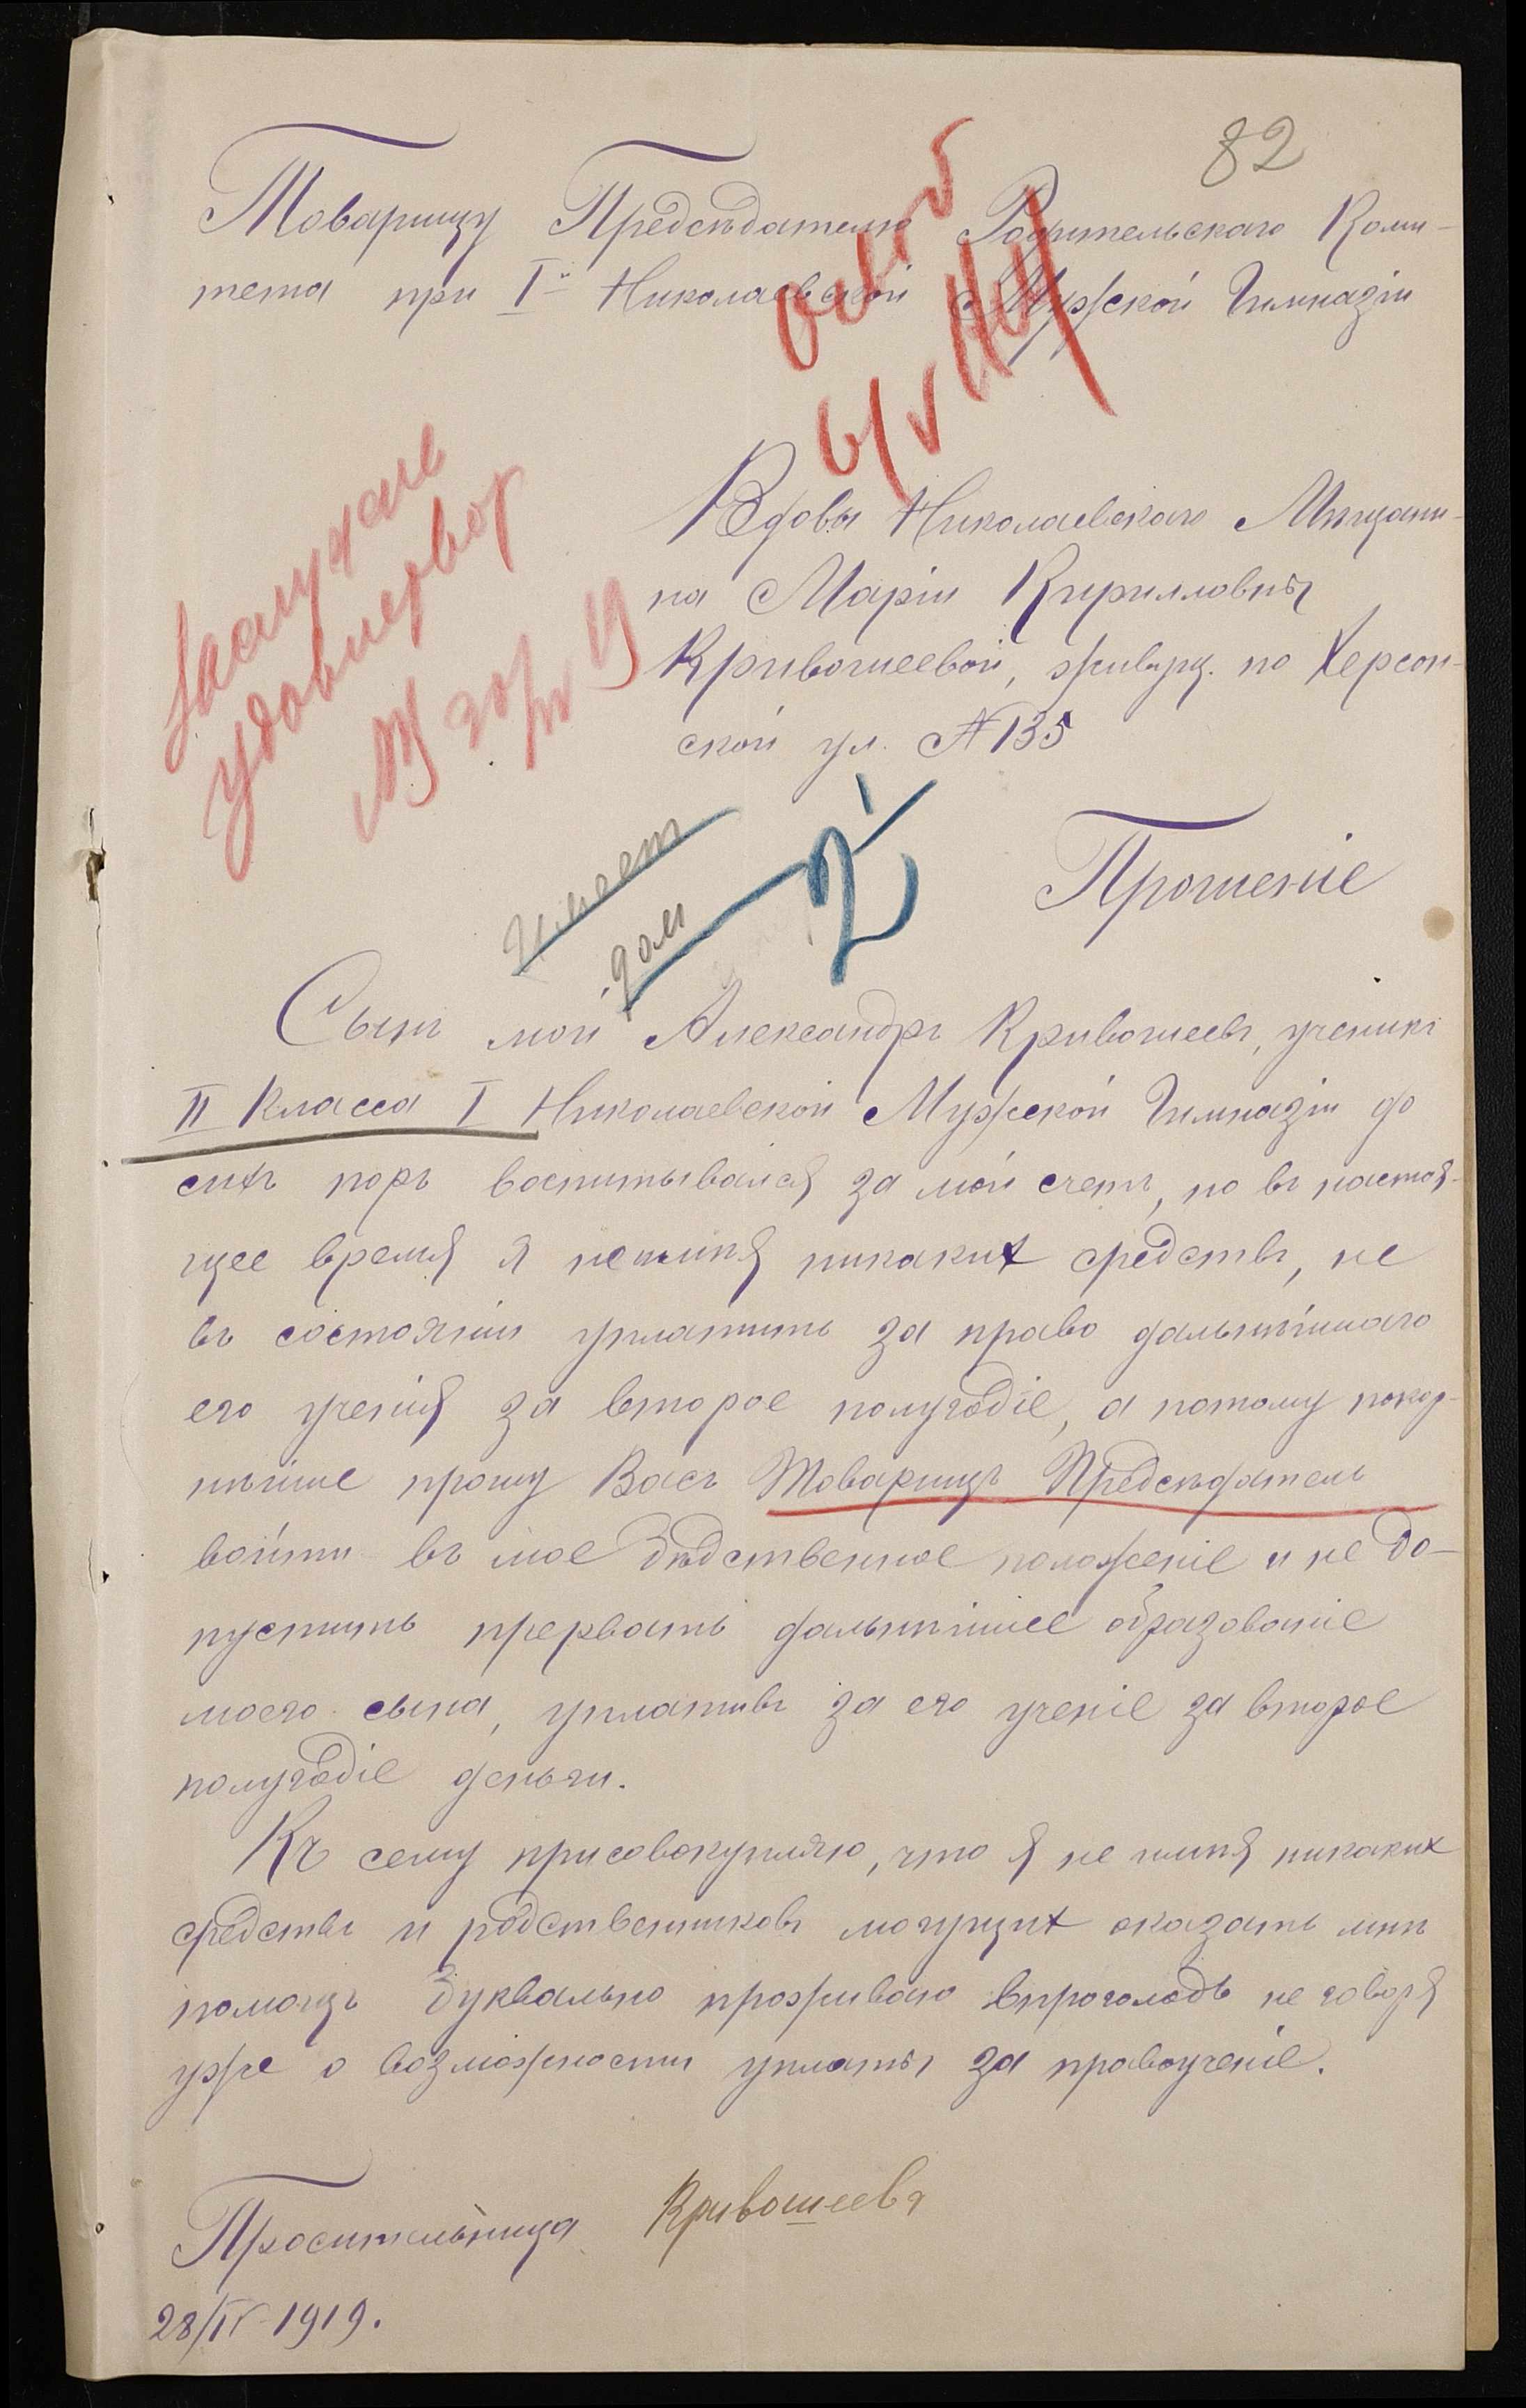 82
Товарищу Предсѣдателю Родительскаго Коми-
тета при I й Николаевской Мужской Гимназіи
6/V
Вдовы Николаевскаго Мѣщани-
на Маріи Кирилловны
Кривошеевой, живущ. по Херсон-
ской ул. № 135
заслуживае
удовлетвор
30/IV 19
имеет
дом
2
Прошеніе
Сынъ мой Александръ Кривошеевъ, ученикъ
II класса I Николаевской Мужской Гимназіи до
сихъ поръ воспитывался за мой счетъ, но въ настоя-
щее время я не имѣя никаких средствъ, не
въ состояніи уплатить за право дальнѣйшаго
его ученія за второе полугодіе, а потому покор-
нѣйше прошу Васъ Товарищъ Предсѣдатель
войти въ мое бѣдственное положеніе и не до-
пустить прервать дальнѣйшее образованіе
моего сына, уплативъ за его ученіе за второе
полугодіе деньги.
Къ сему присовокупляю, что я не имѣя никаких
средствъ и родственниковъ могущих оказать мнѣ
помощь буквально проживаю впроголодь не говоря
уже о возможности уплаты за правоученіе.
Просительница Кривошеева
28/IV 1919.